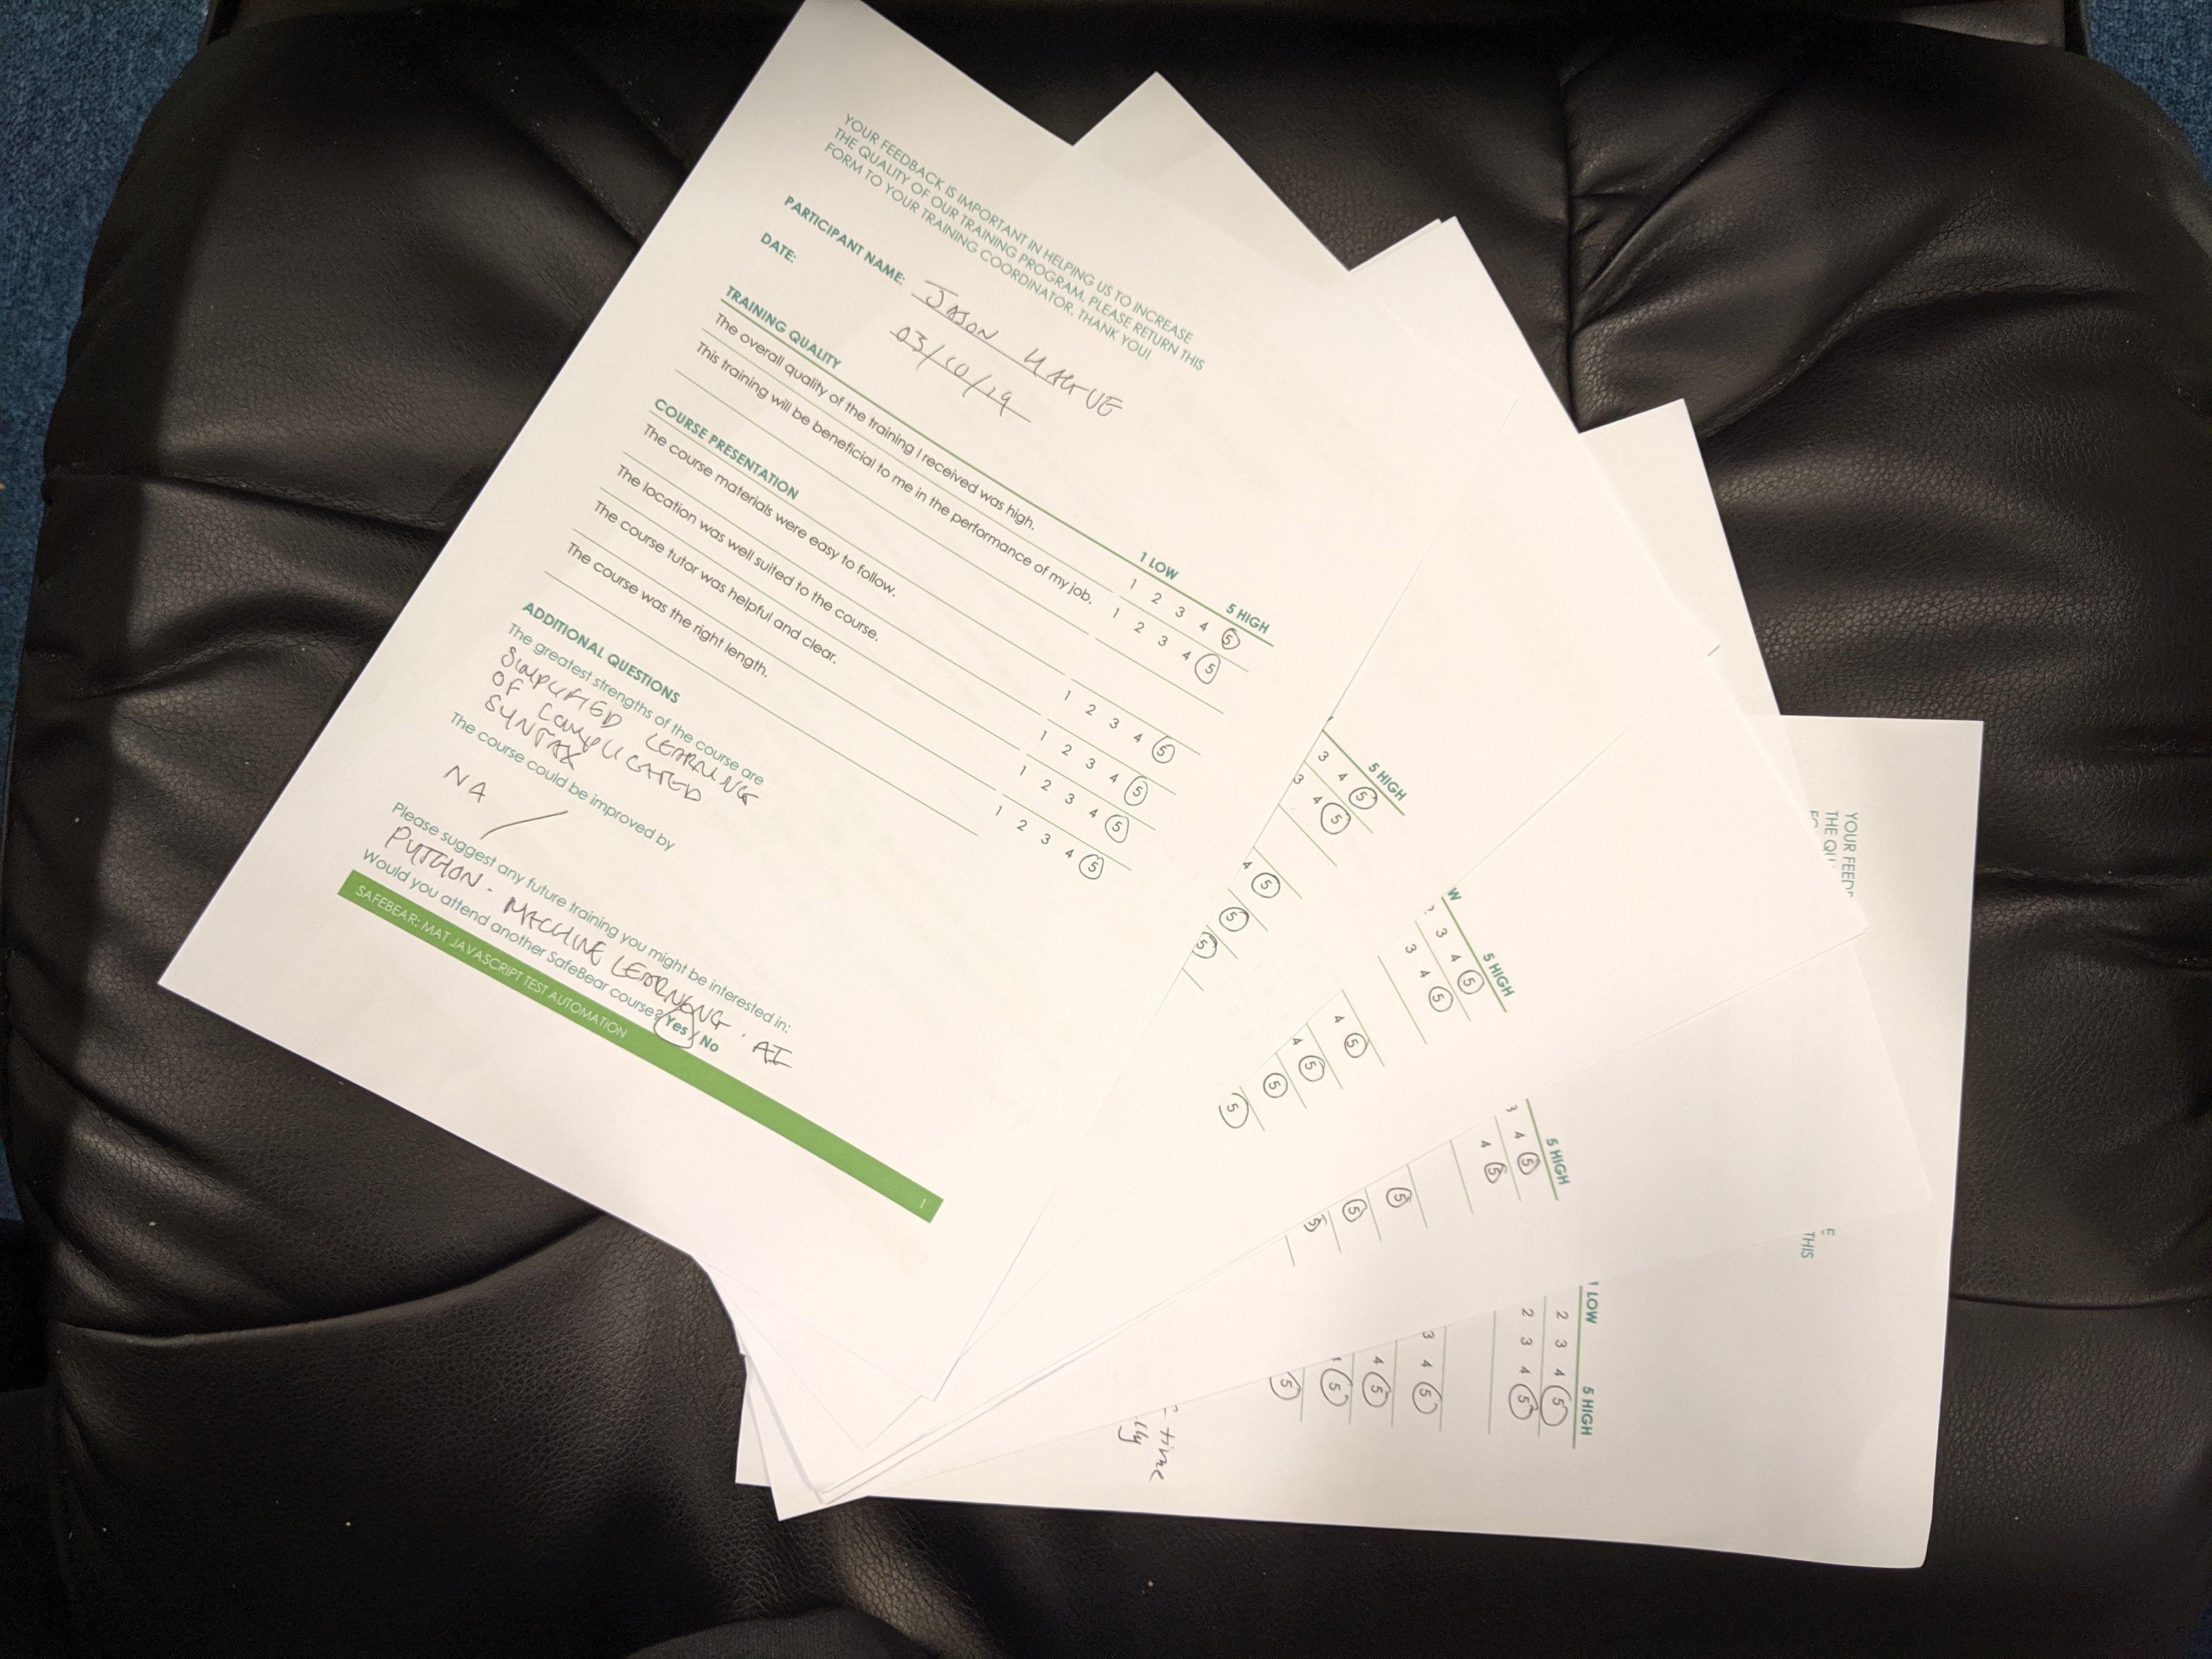 YOUR FEEDBACK IS IMPORTANT IN HELPING US TO INCREASE
THE QUALITY OF OUR TRAINING PROGRAM. PLEASE RETURN THIS
FORM TO YOUR TRAINING COORDINATOR. THANK YOU!
PARTICIPANT NAME: JASON
DATE: 03/10/19
TRAINING QUALITY 1 LOW 5 HIGH
The overall quality of the training I received was high. 1 2 3 4 5
This training will be beneficial to me in the performance of my job. 1 2 3 4 5
COURSE PRESENTATION
The course materials were easy to follow. 1 2 3 4 5
The location was well suited to the course. 1 2 3 4 5
The course tutor was helpful and clear. 1 2 3 4 5
The course was the right length. 1 2 3 4 5
ADDITIONAL QUESTIONS
The greatest strengths of the course are
SIMPLIFIED LEARNING
OF COMPLICATED
SYNTAX
The course could be improved by
NA
Please suggest any future training you might be interested in:
PYTHON - MACHINE LEARNING . AI
Would you attend another SafeBear course? Yes / No
SAFEBEAR: MAT JAVASCRIPT TEST AUTOMATION 1
5 HIGH
3 4 5
3 4 5
4 5
5
5
W 5 HIGH
3 4 5
3 4 5
4 5
4 5
5
5
5 HIGH
3 4 5
4 5
5
5
5
1 LOW 5 HIGH
2 3 4 5
2 3 4 5
3 4 5
4 5
5
5
time
lly
YOUR FEED
THE QU
THIS